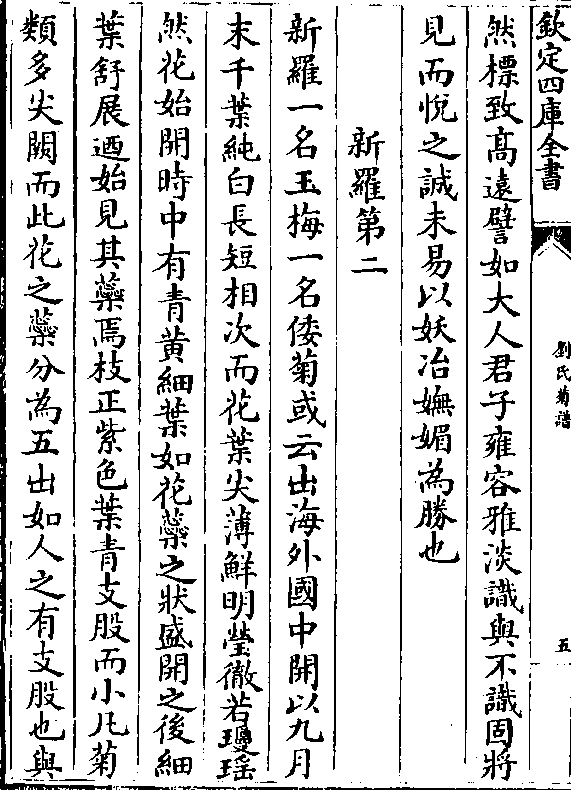 欽定四庫全書
劉氏菊譜
五
然標致髙遠譬如大人君子雍容雅淡識與不識固將
見而悅之誠未易以妖冶嫵媚為勝也
新羅第二
新羅一名玉梅一名倭菊或云出海外國中開以九月
末千葉純白長短相次而花葉尖薄鮮明瑩徹若瓊瑶
然花始開時中有青黃細葉如花蘂之狀盛開之後細
葉舒展迺始見其蘂焉枝正紫色葉青支股而小凡菊
類多尖闕而此花之蘂分為五出如人之有支股也與